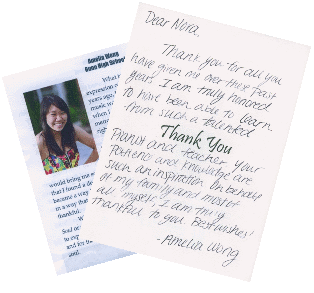 Amelia Wong
Gunn High School
What
expression
years ago,
music
when I
would bring me
that I found a
became a way
in a way that
thankful.
Soul
to exp
and for
Dear Nora,
Thank you for all you
have given me over these past
years. I am truly honored
to have been able to learn
from such a talented
Thank You
Pianist and teacher. Your
Patience and knowledge are
such an inspiration. On behalf
of my family and most of
all myself, I am truly
thankful to you. Best wishes!
-Amelia Wong